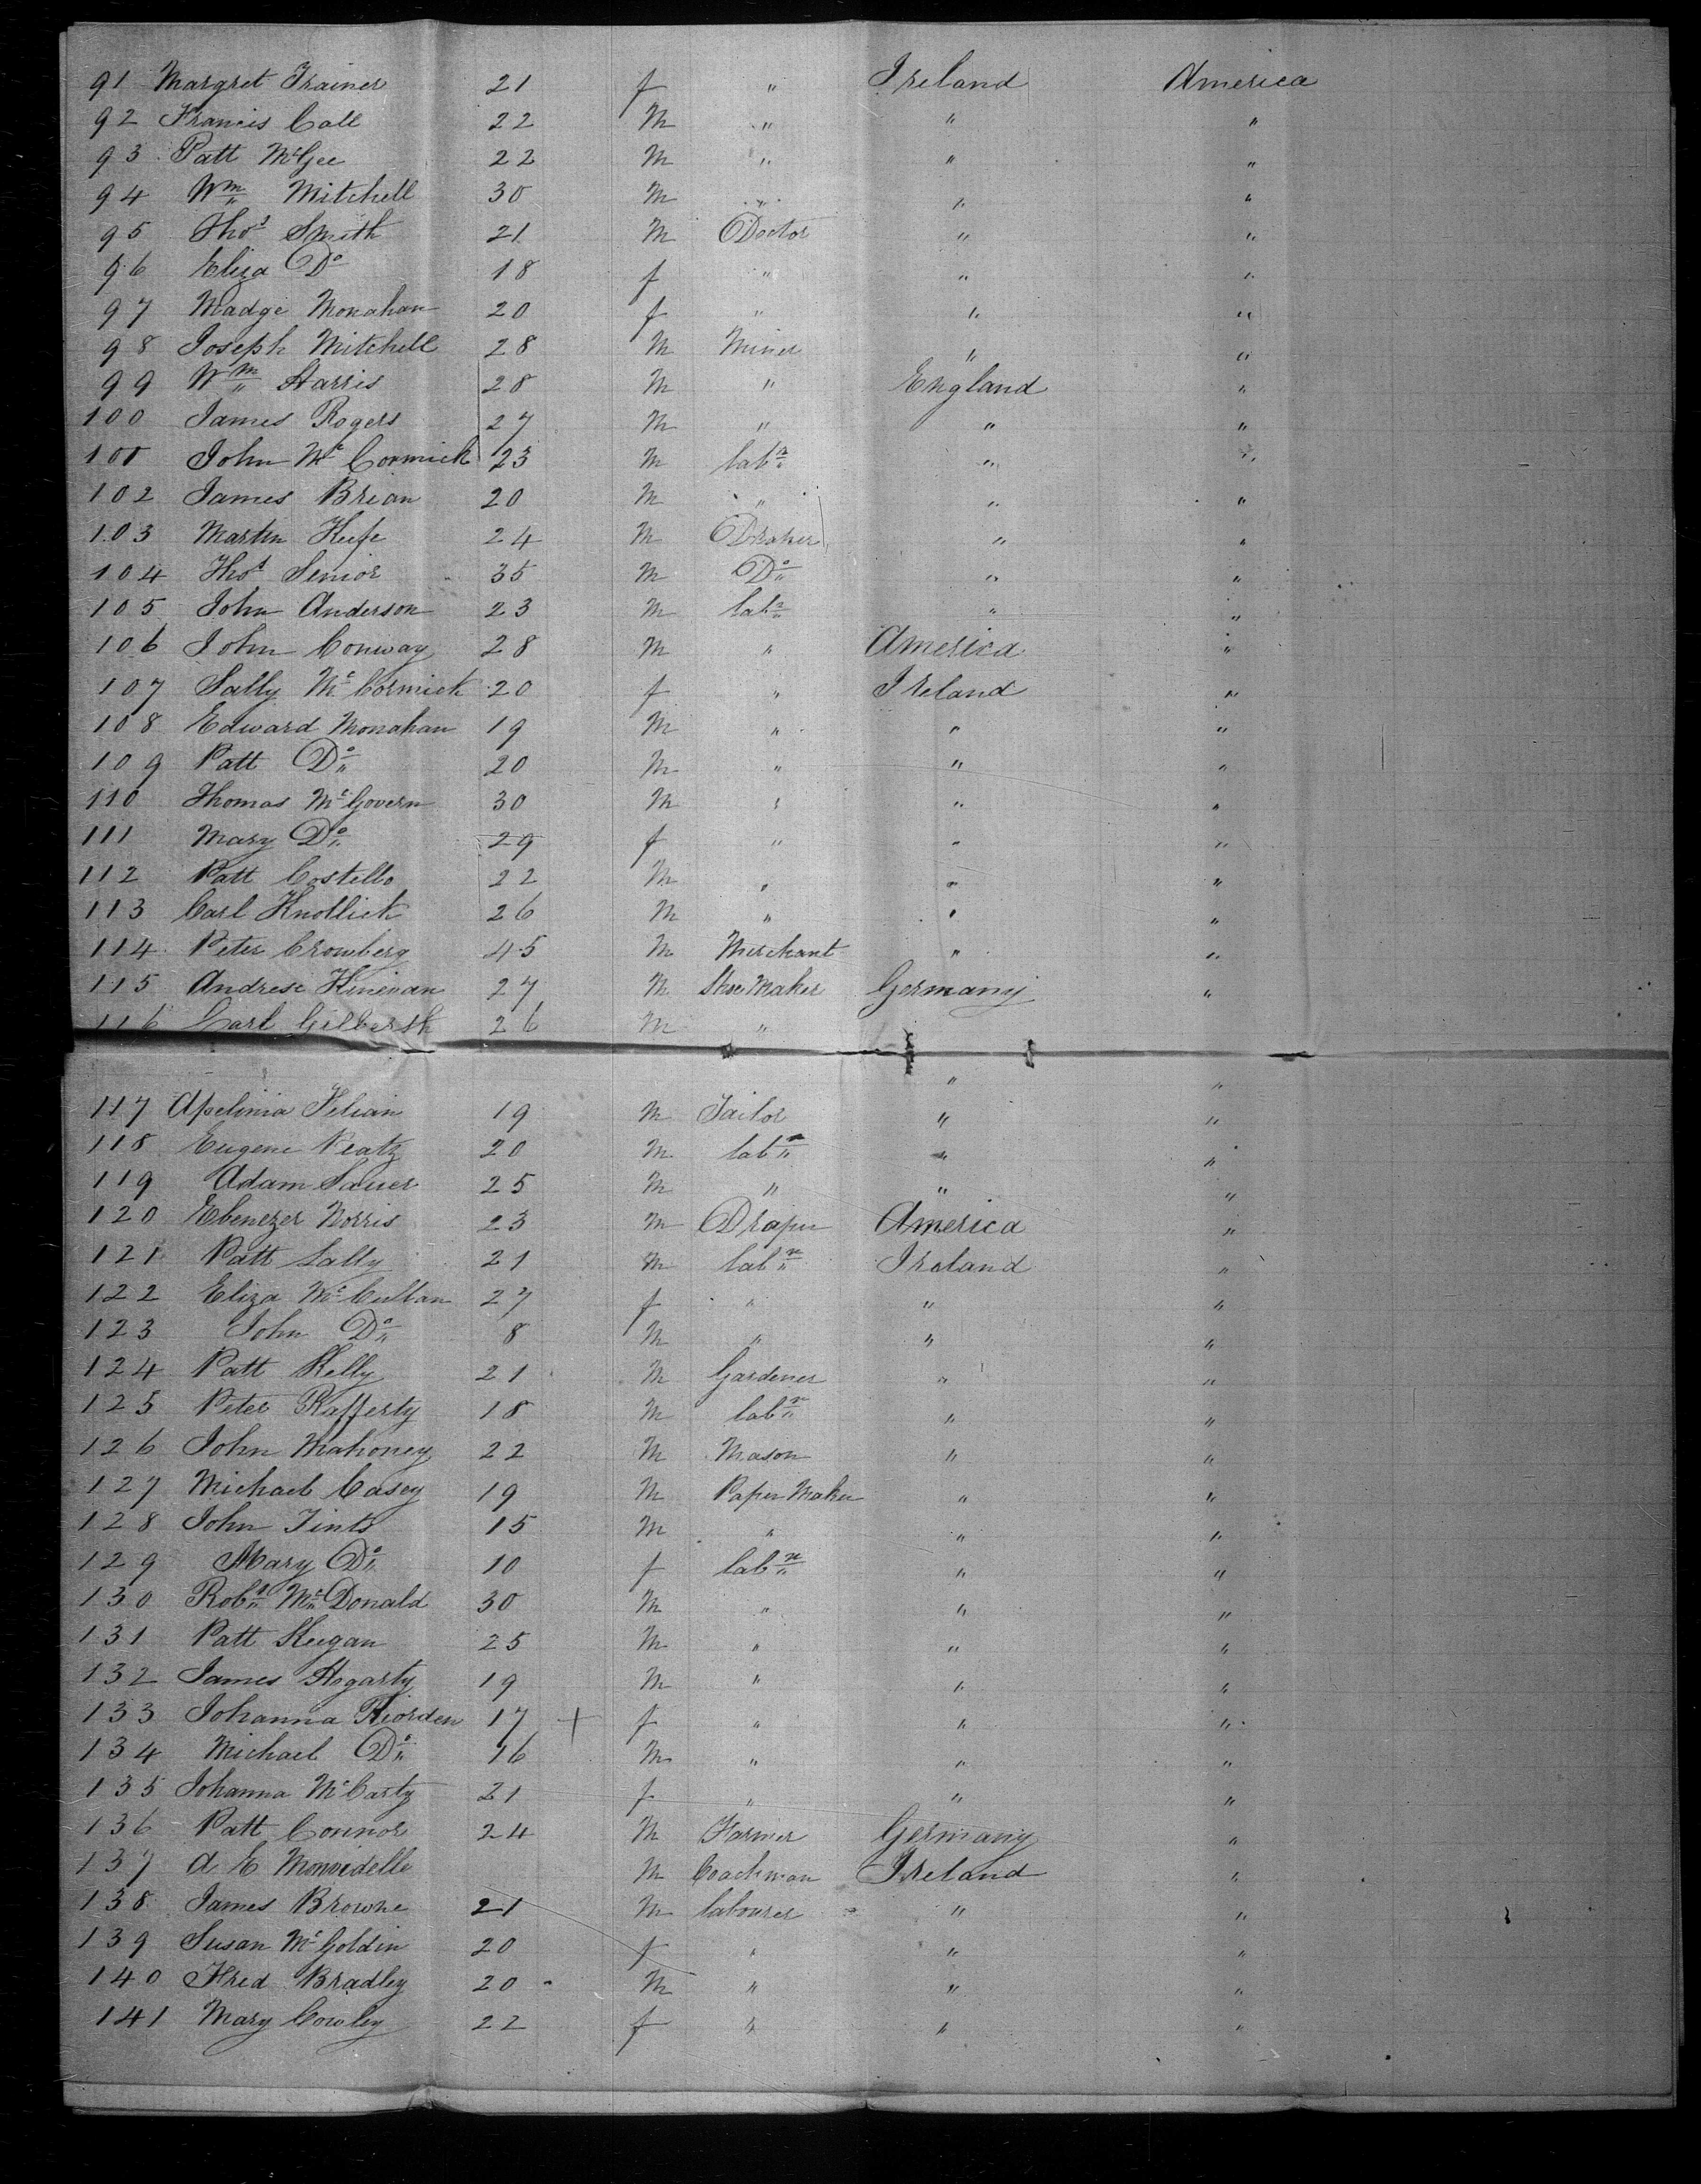 91 Margret Trainer 21 f " Ireland America
92 Francis Call 22 M " " "
93 Patt McGee 22 M " " "
94 Wm Mitchell 30 M " " "
95 Thos Smith 21 M Doctor " "
96 Eliza Do 18 f " " "
97 Madge Monahan 20 f " " "
98 Joseph Mitchell 28 M Miner " "
99 Wm Harris 28 M " England "
100 James Rogers 27 M " " "
101 John Mc Cormick 23 M labr " "
102 James Brian 20 M " " "
103 Martin Keefe 24 M Draper " "
104 Thos Senior 35 M Do " "
105 John Anderson 23 M labr " "
106 John Conway 28 M " America "
107 Sally McCormick 20 f " Ireland "
108 Edward Monahan 19 M " " "
109 Patt Do 20 M " " "
110 Thomas McGovern 30 M " " "
111 Mary Do 29 f " " "
112 Patt Costello 22 M " " "
113 Carl Knollick 26 M " " "
114 Peter Crowberg 45 M Merchant " "
115 Andrese Kinevan 27 M Shoe Maker Germany "
116 Carl Gilbersth 26 M " " "
117 Apelinia Kilian 19 M Tailor " "
118 Eugene Peatz 20 M labr " "
119 Adam Sauer 25 M " " "
120 Ebenezer Norris 23 M Draper America "
121 Patt Lally 21 M labr Ireland "
122 Eliza McCullan 27 f " " "
123 John Do 8 M " " "
124 Patt Kelly 21 M Gardener " "
125 Peter Rafferty 18 M labr " "
126 John Mahoney 22 M Mason " "
127 Michael Casey 19 M Paper Maker " "
128 John Tints 15 M " " "
129 Mary Do 10 f labr " "
130 Robt McDonald 30 M " " "
131 Patt Keegan 25 M " " "
132 James Hogarty 19 M " " "
133 Johanna Riorden 17 + f " " "
134 Michael Do 16 M " " "
135 Johanna McCarty 21 f " " "
136 Patt Connor 24 M Farmer Germany "
137 A E M Coachman Ireland "
138 James Browne 21 M labourer " "
139 Susan McGoldin 20 f " " "
140 Fred Bradley 20 M " " "
141 Mary Cowley 22 f " " "